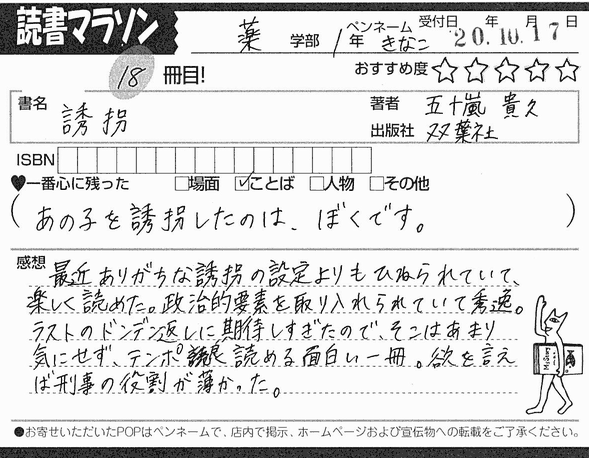 読書マラソン
薬 学部 1年 ペンネーム きなこ 受付日 年 月 日 20.10.17
18 冊目! おすすめ度 ☆☆☆☆☆
書名 誘拐 著者 五十嵐 貴久
出版社 双葉社
ISBN
♥一番心に残った □場面 ☑ことば □人物 □その他
(あの子を誘拐したのは、ぼくです。)
感想 最近ありがちな誘拐の設定よりもひねられていて、
楽しく読めた。政治的要素を取り入れられていて秀逸。
ラストのドンデン返しに期待しすぎたので、そこはあまり
気にせず、テンポ良く読める面白い一冊。欲を言え
ば刑事の役割が薄かった。
●お寄せいただいたPOPはペンネームで、店内で掲示、ホームページおよび宣伝物への転載をご了承ください。